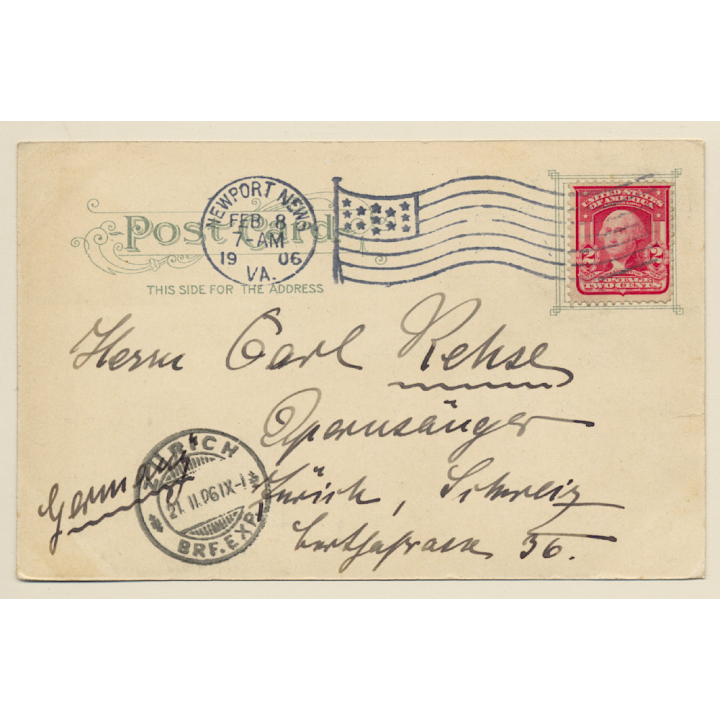 Post Card
NEWPORT NEWS
FEB 8
7 AM
19 06
VA.
UNITED STATES
OF AMERICA
2 2
POSTAGE
TWO CENTS
THIS SIDE FOR THE ADDRESS
Herrn Carl Rehse
Opernsänger
Germany
Zürich, Schweiz
36.
ZÜRICH
21.II.06 IX-1
BRF. EXP.